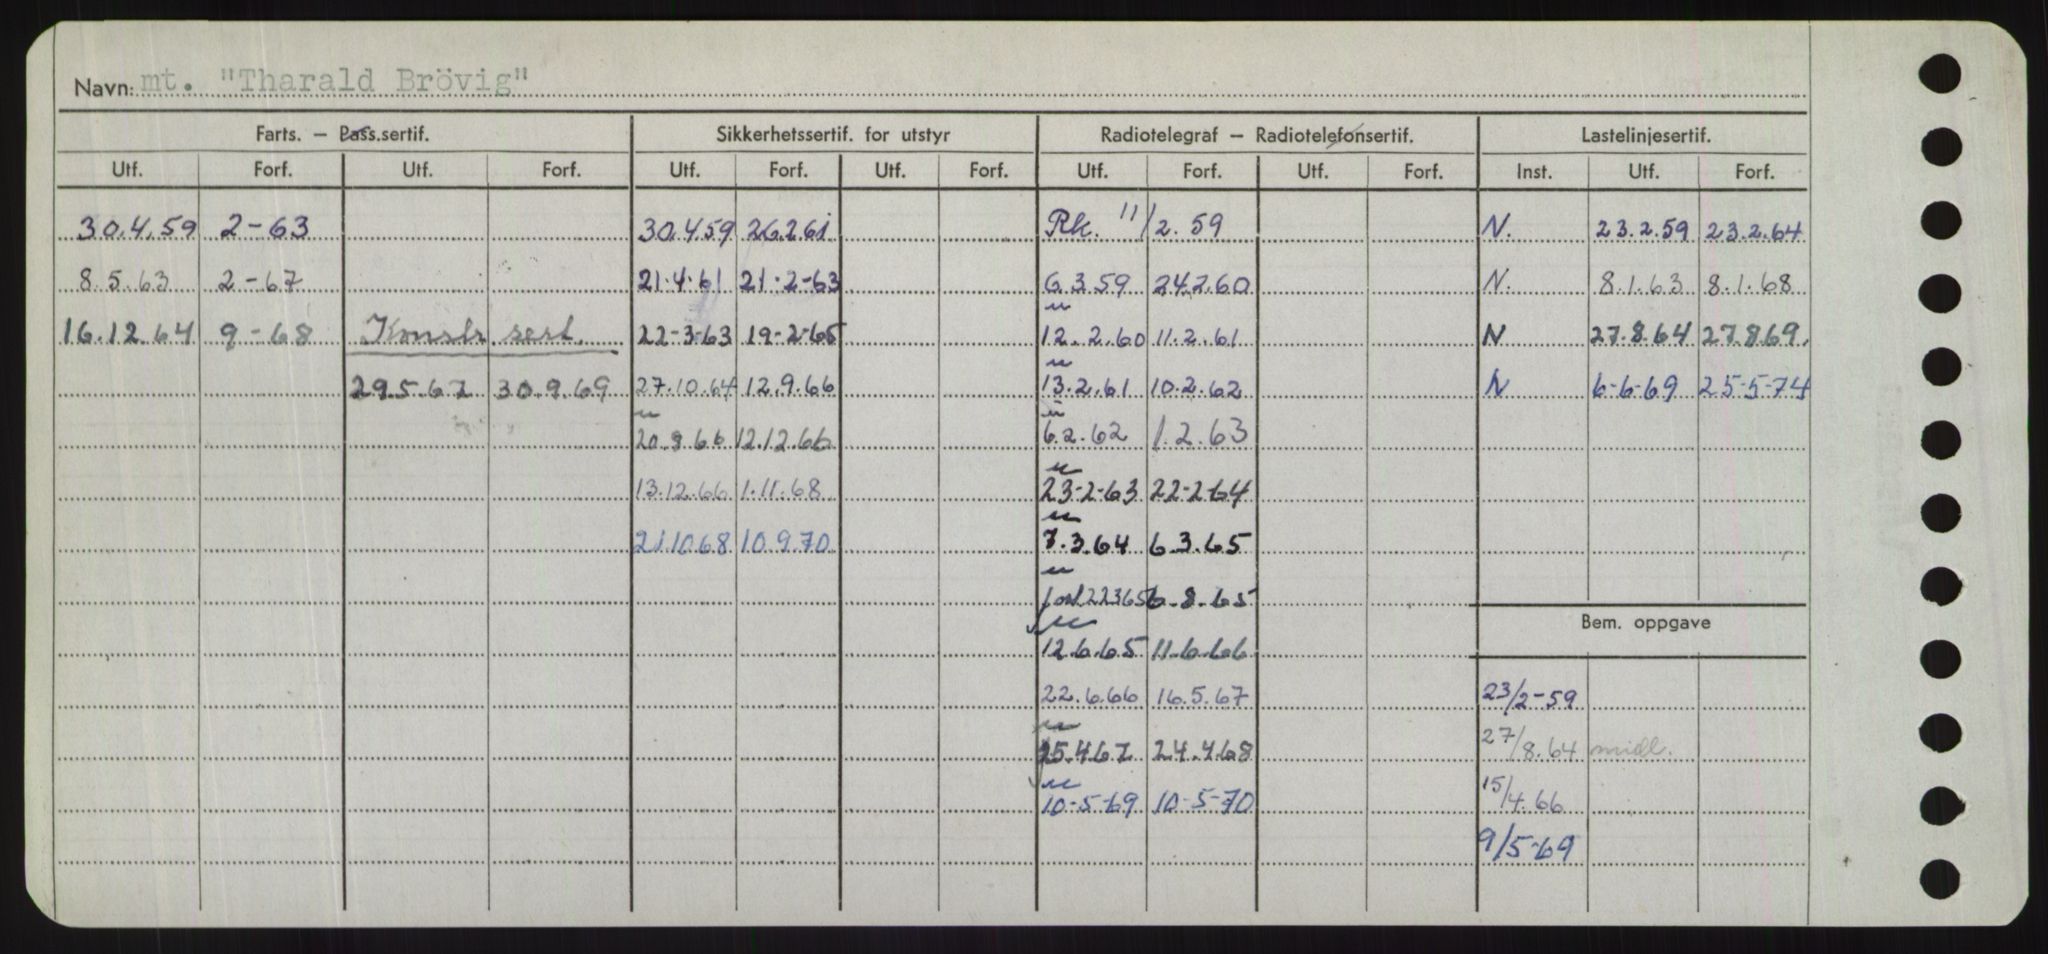 Navn: mt. "Tharald Brövig"
Farts. — Pass.sertif. Sikkerhetssertif. for utstyr Radiotelegraf — Radiotelefonsertif. Lastelinjesertif.
Utf. Forf. Utf. Forf. Utf. Forf. Utf. Forf. Utf. Forf. Utf. Forf. Inst. Utf. Forf.
30.4.59 2-63 30.4.59 26.2.61 Rk. 11/2.59 N. 23.2.59 23.2.64
8.5.63 2-67 21.4.61 21-2-63 6.3.59 24.2.60 N. 8.1.63 8.1.68
16.12.64 9-68 Konstr sert. 22-3-63 19-2-65 12.2.60 11.2.61 N 27.8.64 27.8.69.
29.5.67 30.9.69 27.10.64 12.9.66 13.2.61 10.2.62 N 6-6-69 25-5-74
20.9.66 12.12.66 6.2.62 1.2.63
13.12.66 1.11.68 23-2-63 22-2-64
21.10.68 10.9.70 7.3.64 6.3.65
forl.22365 6.8.65
Bem. oppgave
12.6.65 11.6.66
22.6.66 16.5.67 23/2-59
25.4.67 24.4.68 27/8.64 midl.
10-5-69 10-5-70 15/4.66
9/5-69